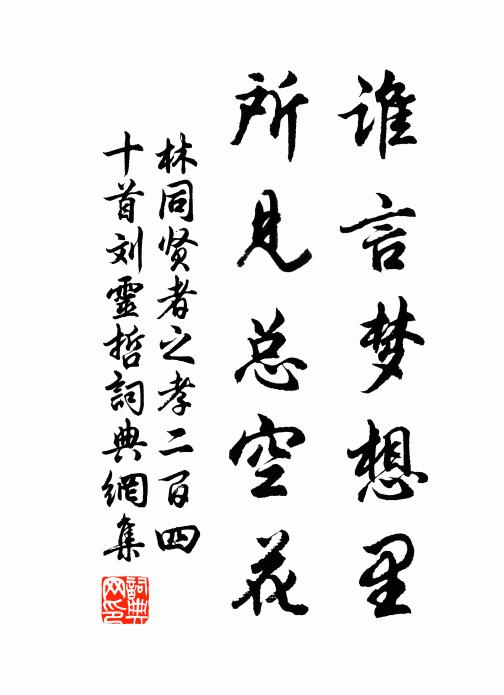 谁言梦想里
所见总空花
林同贤者之孝二百四
十首刘靈哲詞典網集
詞典网印